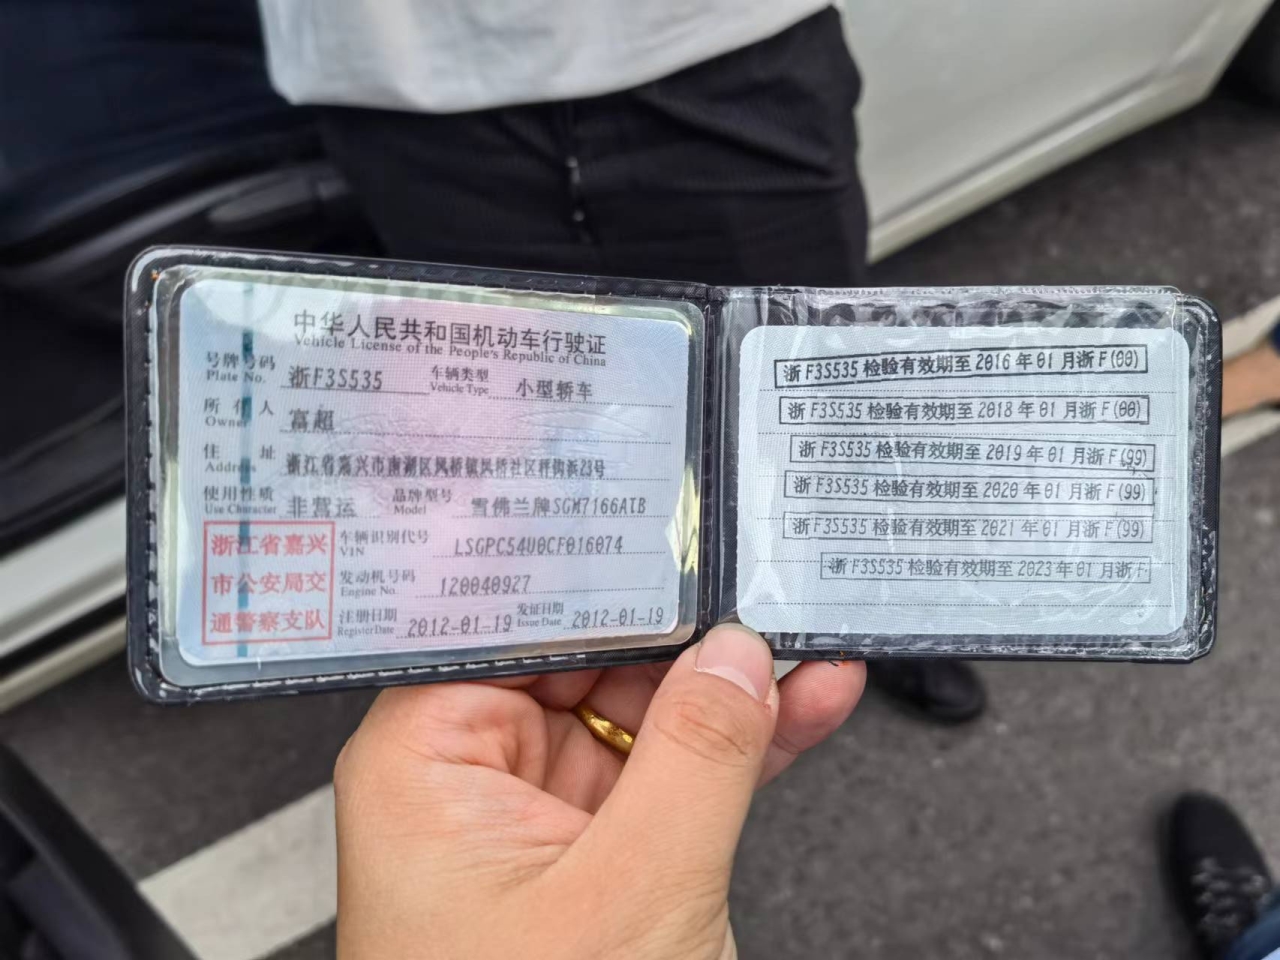 中华人民共和国机动车行驶证
Vehicle License of the People's Republic of China
号牌号码 浙F3S535 车辆类型 小型轿车
Plate No. Vehicle Type
所有人 富超
Owner
住址 浙江省嘉兴市南湖区凤桥镇凤桥社区
Address
使用性质 非营运 品牌型号 雪佛兰牌SGM7166ATB
Use Character Model
浙江省嘉兴
市公安局交
通警察支队
车辆识别代号 LSGPC54U0CF016074
VIN
发动机号码 120040927
Engine No.
注册日期 2012-01-19 发证日期 2012-01-19
Register Date Issue Date
浙F3S535 检验有效期至 2016 年 01 月浙 F(00)
浙F3S535 检验有效期至 2018 年 01 月浙 F(00)
浙F3S535 检验有效期至 2019 年 01 月浙 F(99)
浙F3S535 检验有效期至 2020 年 01 月浙 F(99)
浙F3S535 检验有效期至 2021 年 01 月浙 F(99)
浙F3S535 检验有效期至 2023 年 01 月浙 F